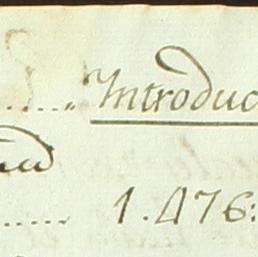 ....." Introduc
..... 1.476: